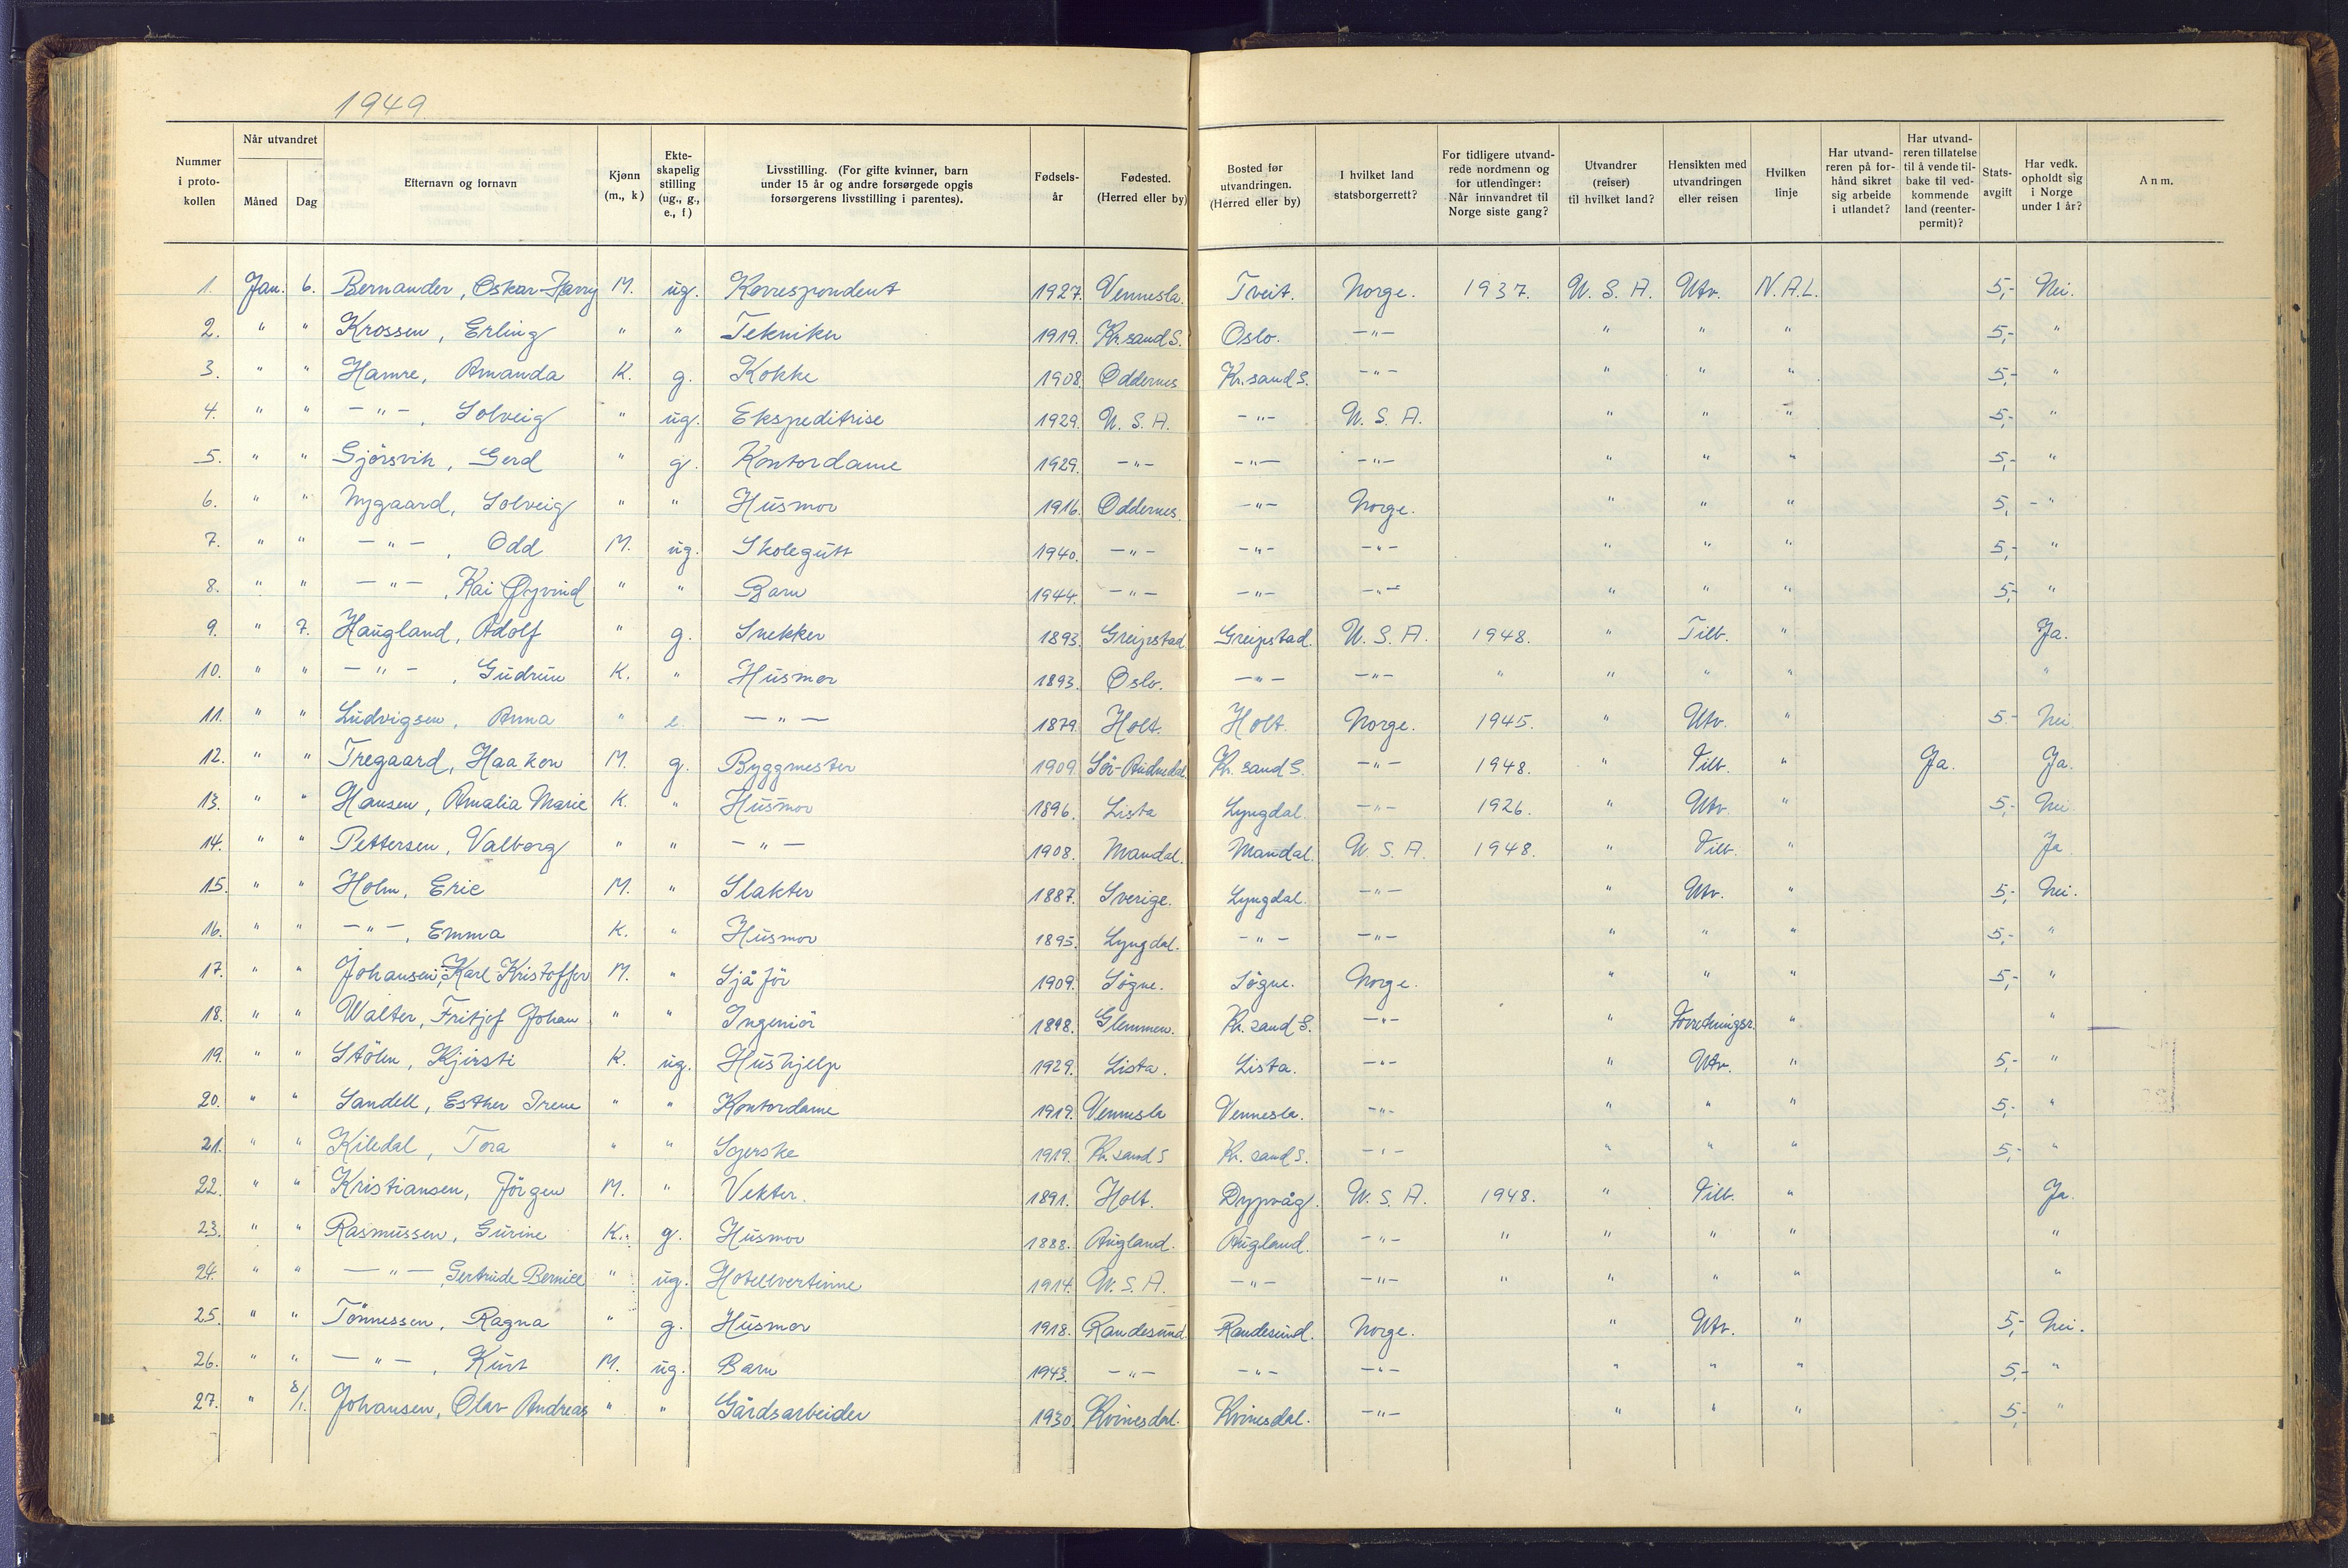 1949
Nummer i protokollen | Når utvandret Måned | Dag | Efternavn og fornavn | Kjønn (m., k) | Ekteskapelig stilling (ug., g., e., f) | Livsstilling. (For gifte kvinner, barn under 15 år og andre forsørgede opgis forsørgerens livsstilling i parentes). | Fødselsår | Fødested. (Herred eller by) | Bosted før utvandringen. (Herred eller by) | I hvilket land statsborgerrett? | For tidligere utvandrede nordmenn og for utlendinger: Når innvandret til Norge siste gang? | Utvandrer (reiser) til hvilket land? | Hensikten med utvandringen eller reisen | Hvilken linje | Har utvandreren på forhånd sikret sig arbeide i utlandet? | Har utvandreren tillatelse til å vende tilbake til vedkommende land (reenterpermit)? | Statsavgift | Har vedk. opholdt sig i Norge under 1 år? | Anm.
1. Jan. 6. Bernander, Oskar Harry M. ug. Korrespondent 1927. Vennesla. Tveit. Norge. 1937. U.S.A. Utv. N.A.L. 5,- Nei.
2. " " Krossen, Erling " " Tekniker 1919. Kr.sand S. Oslo. -"- " " " 5,- "
3. " " Hamre, Amanda K. g. Kokke 1908. Oddernes Kr.sand S. -"- " " " 5,- "
4. " " -"-, Solveig " ug. Ekspeditrise 1929. U.S.A. -"- U.S.A. " " " 5,- "
5. " " Gjörsvik, Gerd " g. Kontordame 1929. -"- -"- -"- " " " 5,- "
6. " " Nygaard, Solveig " " Husmor 1916. Oddernes. -"- Norge. " " " 5,- "
7. " " -"-, Odd M. ug. Skolegutt 1940. -"- -"- -"- " " " 5,- "
8. " " -"-, Kai Øyvind " " Barn 1944. -"- -"- -"- " " " 5,- "
9. " 7. Haugland, Adolf " g. Snekker 1893. Greipstad Greipstad. U.S.A. 1948. " Tilb. " Ja.
10. " " -"-, Gudrun K. " Husmor 1893. Oslo. -"- -"- " " " " "
11. " " Ludvigsen, Anna " e. -"- 1879. Holt. Holt. Norge. 1945. " Utv. " 5.- Nei.
12. " " Tregaard, Haakon M. g. Byggmester 1909. Sör-Audnedal Kr.sand S. -"- 1948. " Tilb. " Ja. Ja.
13. " " Hansen, Amalia Marie K. " Husmor 1896. Lista Lyngdal. -"- 1926. " Utv. " 5,- Nei
14. " " Pettersen, Valborg " " -"- 1908. Mandal. Mandal. U.S.A. 1948. " Tilb. " Ja
15. " " Holm, Eric M. " Slakter 1887. Sverige. Lyngdal. -"- " Utv. " 5,- Nei.
16. " " -"-, Emma K. " Husmor 1895. Lyngdal. -"- -"- " " " 5,- "
17. " " Johansen, Karl Kristoffer M. " Sjåför 1909. Sögne. Sögne. Norge. " " " 5,- "
18. " " Walter, Fritjof Johan " " Ingeniör 1898. Glemmen. Kr.sand S. -"- " Forretningsr. " "
19. " " Stölen, Kjersti K. ug. Hushjelp 1929. Lista. Lista. -"- " Utv. " 5,- "
20. " " Sandell, Esther Irene " " Kontordame 1919. Vennesla Vennesla. -"- " " " 5,- "
21. " " Kiledal, Tora " " Syerske 1919. Kr.sand S Kr.sand S. -"- " " " 5,- "
22. " " Kristiansen, Jörgen M. " Vekter. 1891. Holt. Dypvåg. U.S.A. 1948. " Tilb. " Ja.
23. " " Rasmussen, Gurine K. g. Husmor 1888. Augland. Augland. -"- " " " " "
24. " " -"- Gertrude Bernice " ug. Hotellvertinne 1914. U.S.A. -"- -"- " " " " "
25. " " Tönnessen, Ragna " g. Husmor 1918. Randesund Randesund. Norge. " Utv. " 5,- Nei.
26. " " -"-, Kurt M. ug. Barn 1943. -"- -"- -"- " " " 5,- "
27. " 8/1. Johansen, Olav Andreas " " Gårdsarbeider 1930. Kvinesdal. Kvinesdal. -"- " " " 5,- "